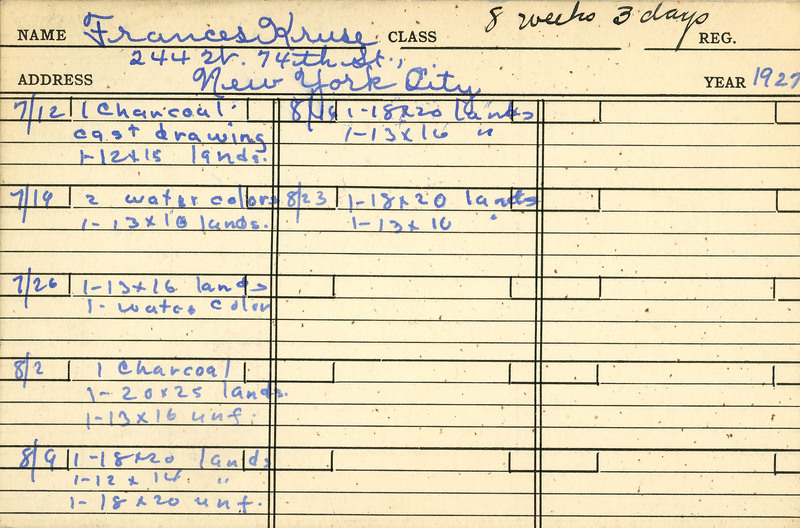 8 weeks 3 days
NAME Frances Kruse CLASS REG.
244 W. 74th St.,
ADDRESS New York City YEAR 1927
7/12 1 Charcoal
cast drawing
1-12x15 lands.
7/19 2 water colors
1-13x16 lands.
7/26 1-13x16 lands
1- water color
8/2 1 Charcoal
1-20x25 lands.
1-13x16 unf.
8/9 1-18x20 lands
1-12x14 "
1-18x20 unf.
1-18x20 lands
1-13x16 "
8/23 1-18x20 lands
1-13x16 "